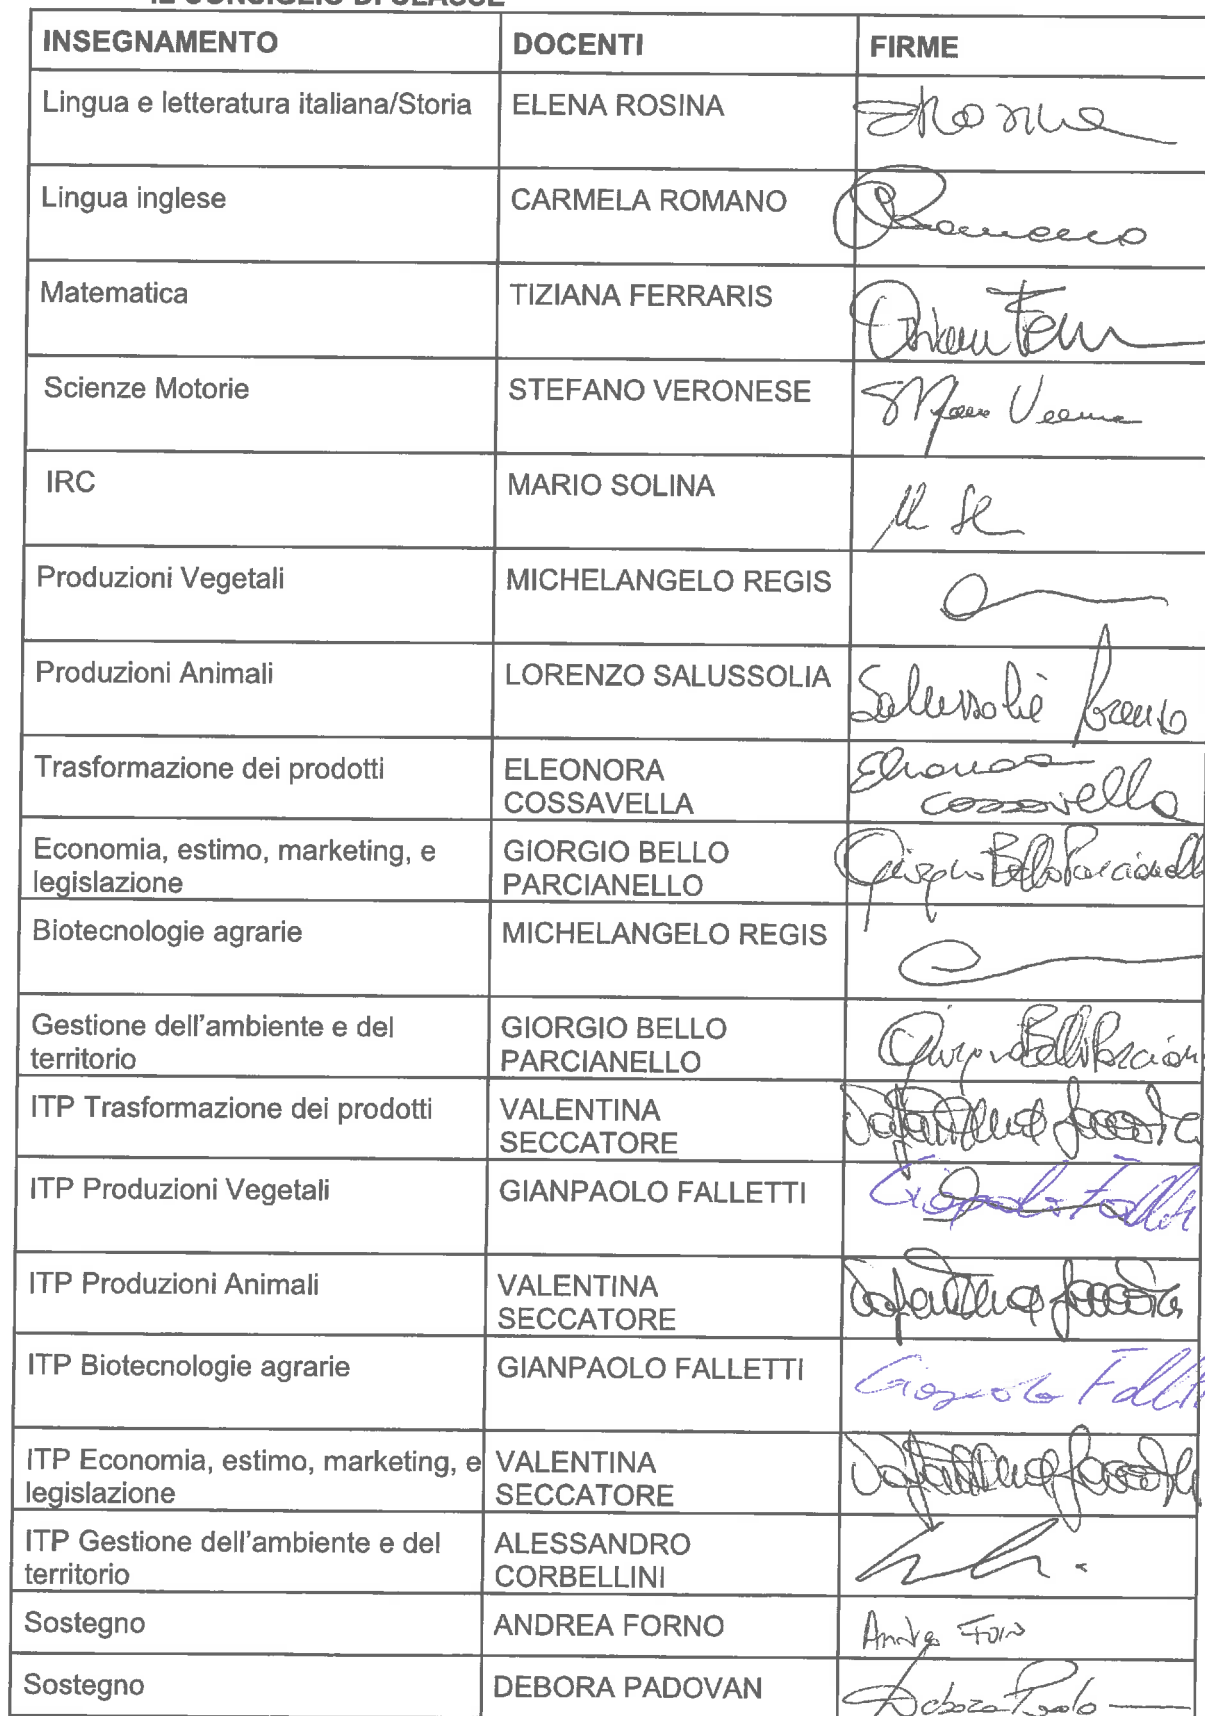 IL CONSIGLIO DI CLASSE
INSEGNAMENTO DOCENTI FIRME
Lingua e letteratura italiana/Storia ELENA ROSINA
Lingua inglese CARMELA ROMANO
Matematica TIZIANA FERRARIS
Scienze Motorie STEFANO VERONESE
IRC MARIO SOLINA
Produzioni Vegetali MICHELANGELO REGIS
Produzioni Animali LORENZO SALUSSOLIA
Trasformazione dei prodotti ELEONORA
COSSAVELLA Cossavella
Economia, estimo, marketing, e GIORGIO BELLO
legislazione PARCIANELLO
Biotecnologie agrarie MICHELANGELO REGIS
Gestione dell'ambiente e del GIORGIO BELLO
territorio PARCIANELLO
ITP Trasformazione dei prodotti VALENTINA
SECCATORE
ITP Produzioni Vegetali GIANPAOLO FALLETTI
ITP Produzioni Animali VALENTINA
SECCATORE
ITP Biotecnologie agrarie GIANPAOLO FALLETTI
ITP Economia, estimo, marketing, e VALENTINA
legislazione SECCATORE
ITP Gestione dell'ambiente e del ALESSANDRO
territorio CORBELLINI
Sostegno ANDREA FORNO
Sostegno DEBORA PADOVAN